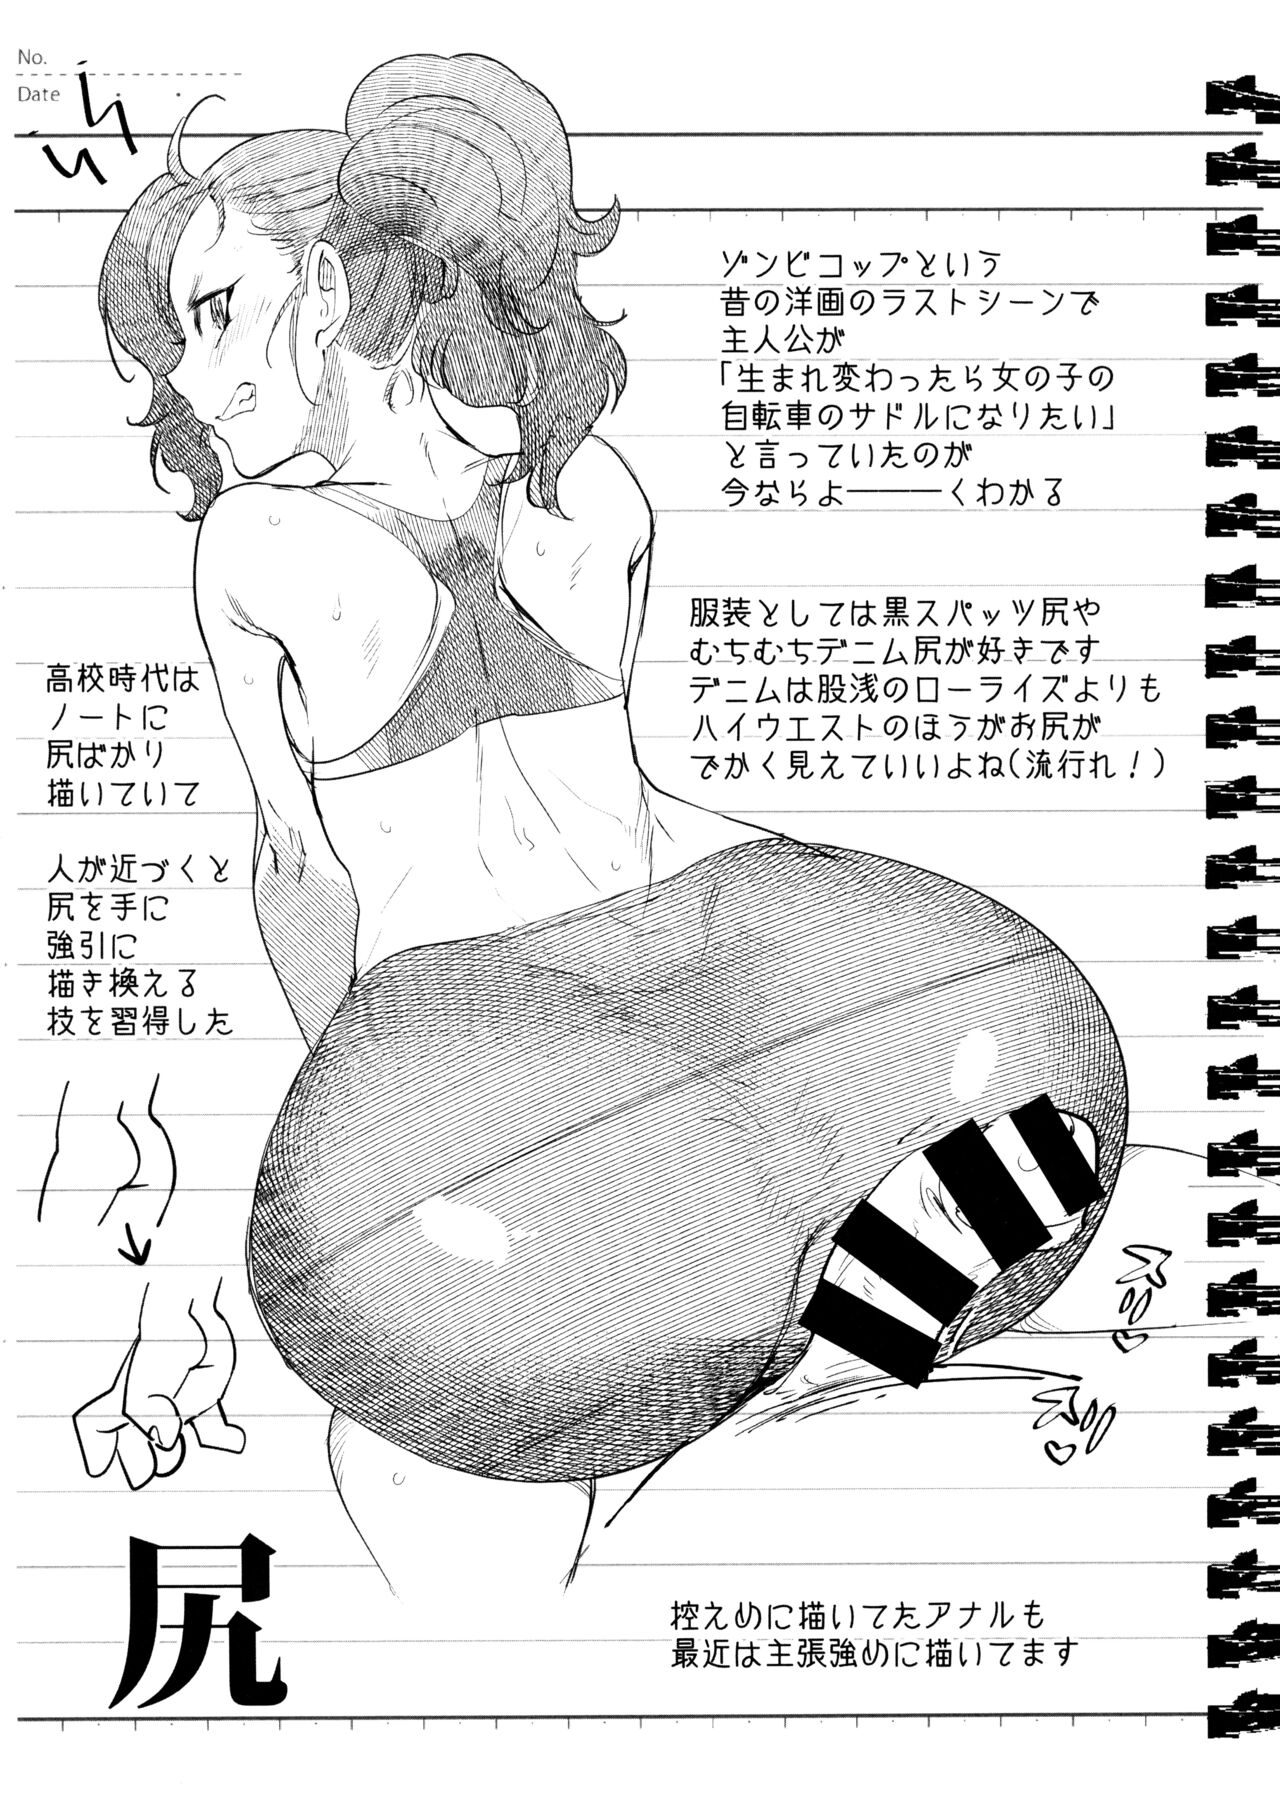 No.
Date
ゾンビコップという
昔の洋画のラストシーンで
主人公が
「生まれ変わったら女の子の
自転車のサドルになりたい」
と言っていたのが
今ならよ―――くわかる
服装としては黒スパッツ尻や
むちむちデニム尻が好きです
デニムは股浅のローライズよりも
ハイウエストのほうがお尻が
でかく見えていいよね(流行れ！)
高校時代は
ノートに
尻ばかり
描いていて
人が近づくと
尻を手に
強引に
描き換える
技を習得した
尻
控えめに描いてたアナルも
最近は主張強めに描いてます